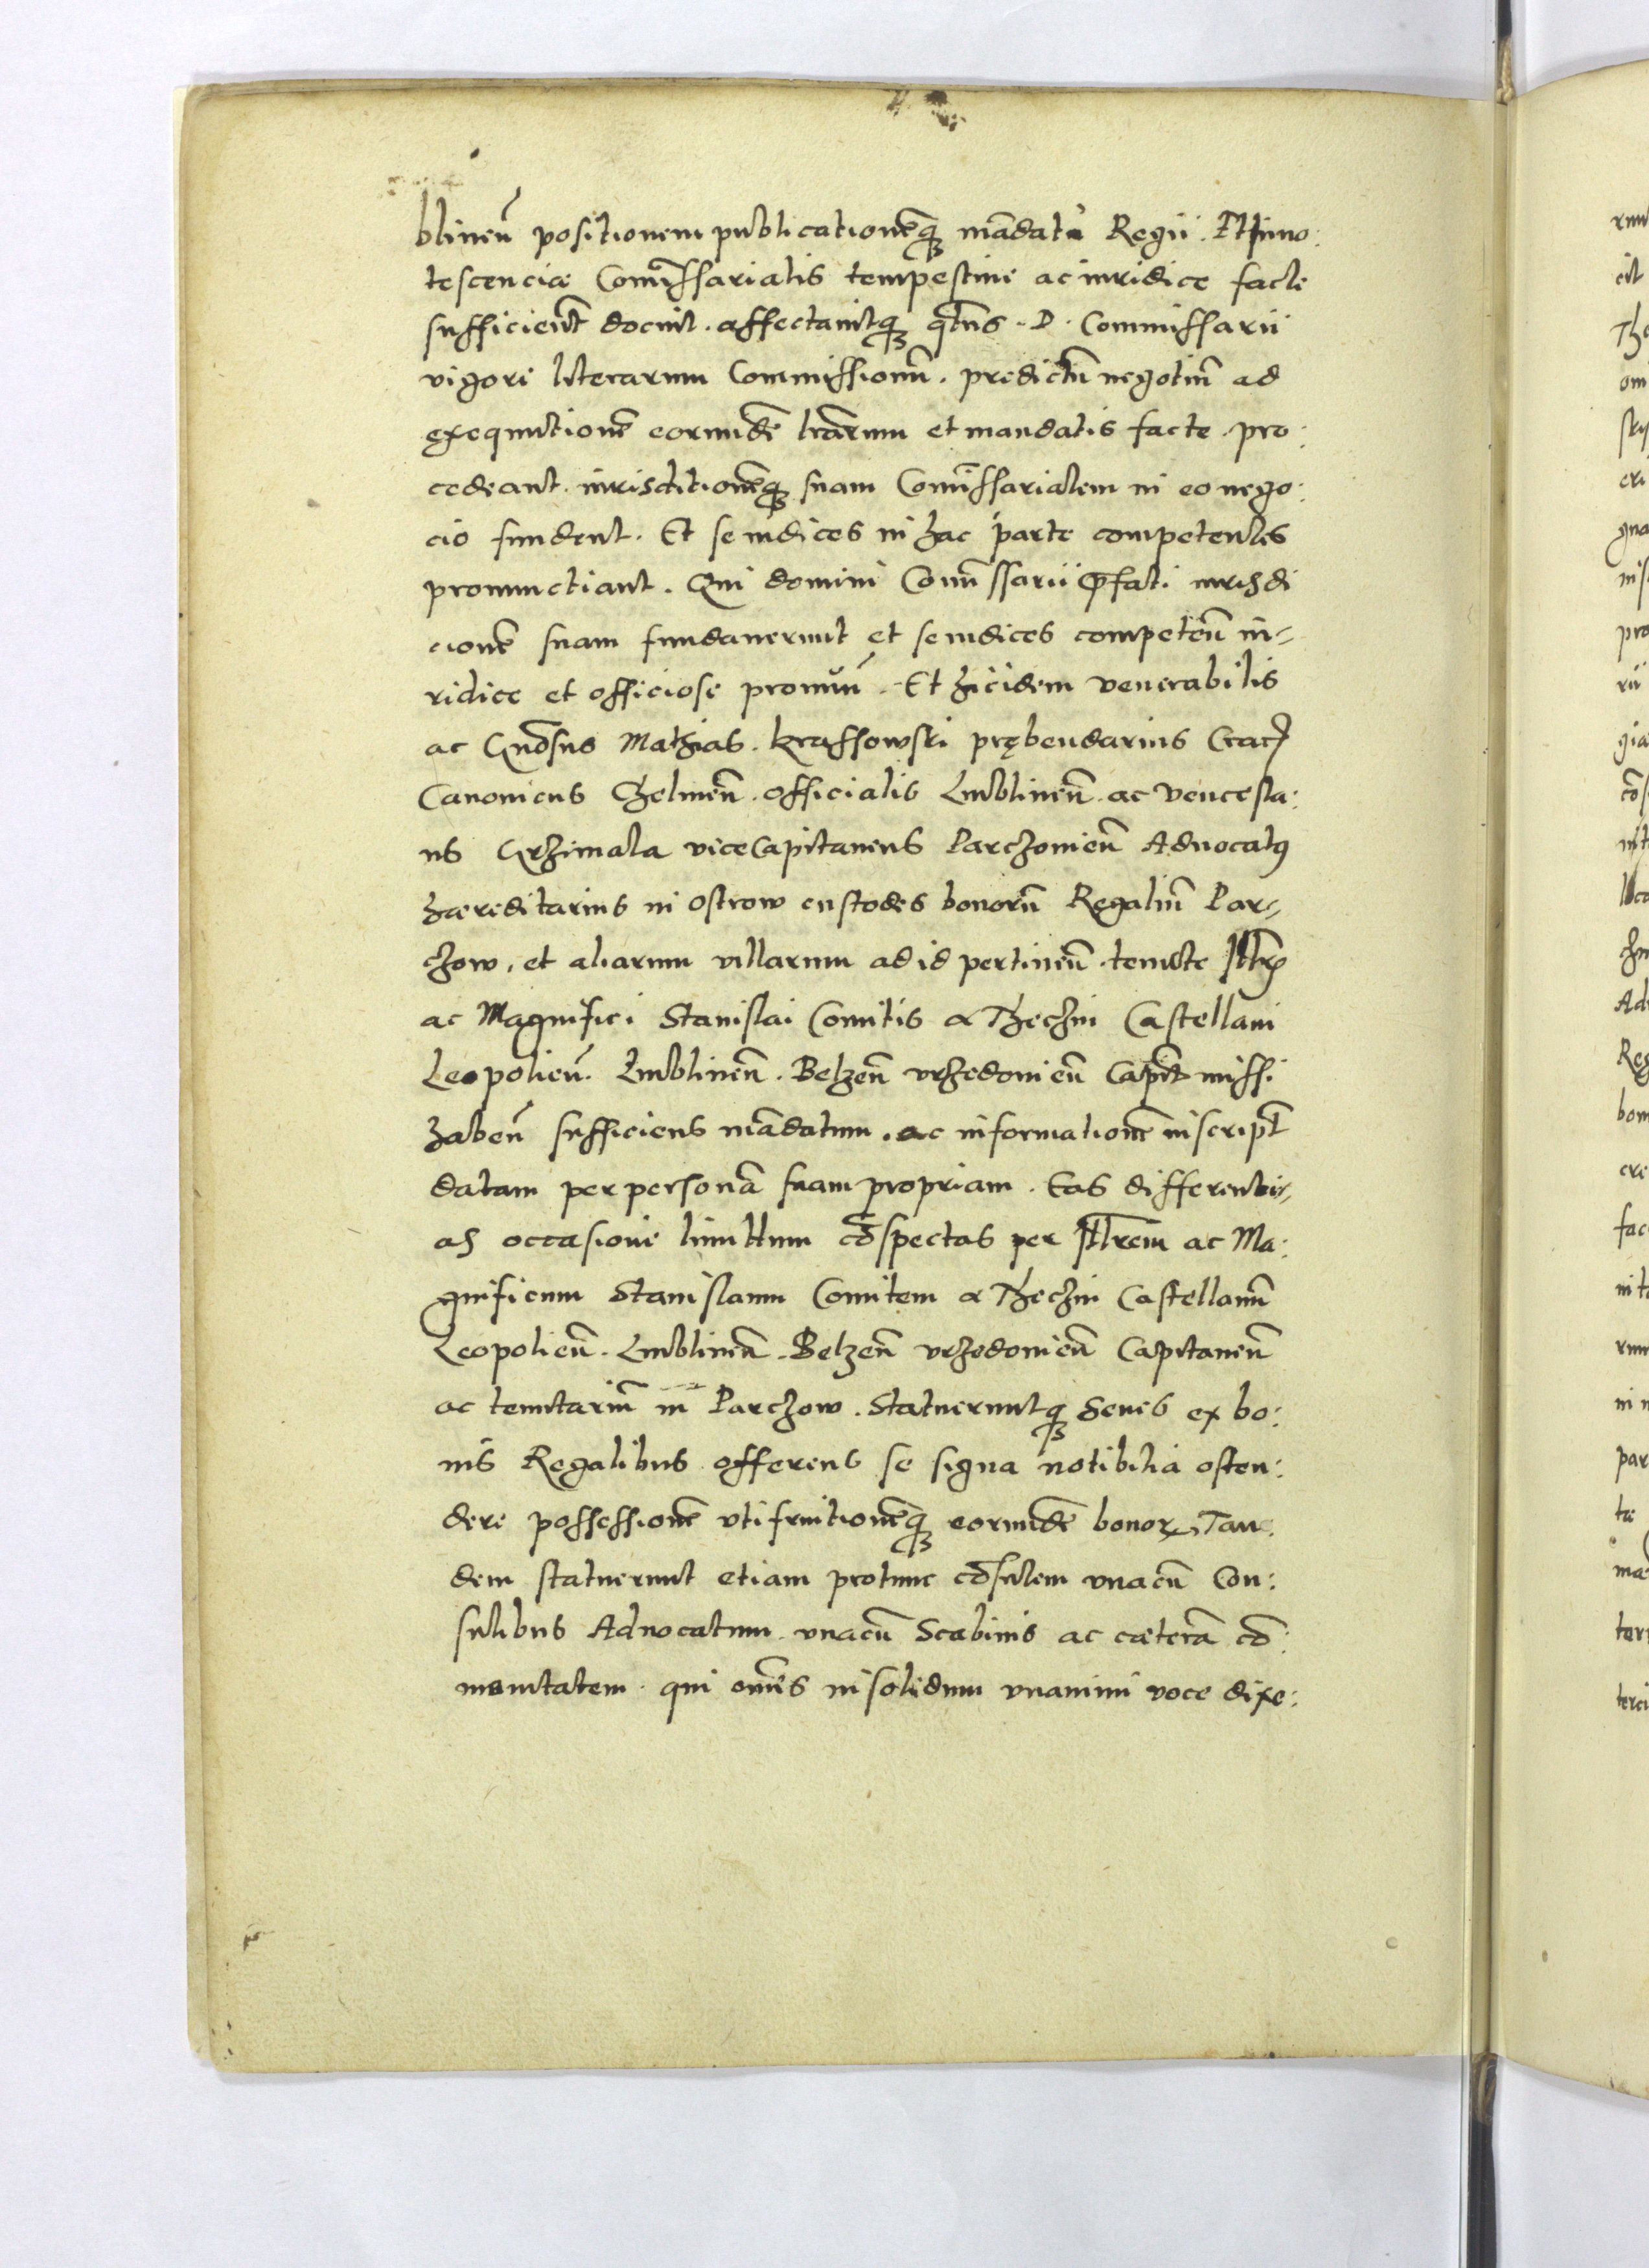 blinen̄ positionem publicationēq₃ mādati Regii. Et inno:
tescencie Com̄issarialis tempestiue ac iuridice facte
sufficient̄ docuit. affectauitq₃ qt̄us. D. Commissarii
vigore literarum Commissionū. predictū negotiū ad
exequutionē eorundē lrārum et mandatis facte. pro:
cedeant. iurisdictionēq₃ suam Com̄issarialem in eo nego:
cio fundent. Et se iudices in hac parte competentes
pronunctiant. Qui domini Com̄issarii p̄fati iurisdi
cionē suam fundauerunt et se iudices competen̄ iu-
ridice et officiose pronun̄. Et hicidem venerabilis
ac Gn̄osus Mathias. Krassowski prębendarius Crac̄
Canonicus Chelmen̄. officialis Lublinen̄. ac Vencesla:
us Grzimala viceCapitaneus Parczouien̄ Aduocatꝯ
hæreditarius in Ostrow custodes bonorū Regaliū Par-
czow. et aliarum villarum ad id pertinen̄. tenute Illr̄is
ac Magnifici Stanislai Comitis a Theczin Castellani
Leopolien̄. Lublinen̄. Belzen̄ vrzedouien̄ Capit̄ missi
haben̄ sufficiens mādatum. ac informationē in script̄
datam per personā suam propriam. Eas differenti-
as occasione limitum cōspectas per Illr̄em ac Ma:
gnificum Stanislaum Comitem a Theczin Castellanū
Leopolien̄. Lublinen̄. Belzen̄ vrzedouien̄ Capitaneū
ac tenutariū in Parczow. Statueruntq₃ Senes ex bo:
nis Regalibus offerens se signa notibilia osten:
dere possessionē vtifruitionēq₃ eorundē bonoꝝ. Tan:
dem statuerunt etiam protunc cōsulem vnacū Con:
sulibus Aduocatum. vnacū Scabinis ac cæterā cō:
munitatem. qui om̄es in solidum vnanimi voce dixe: